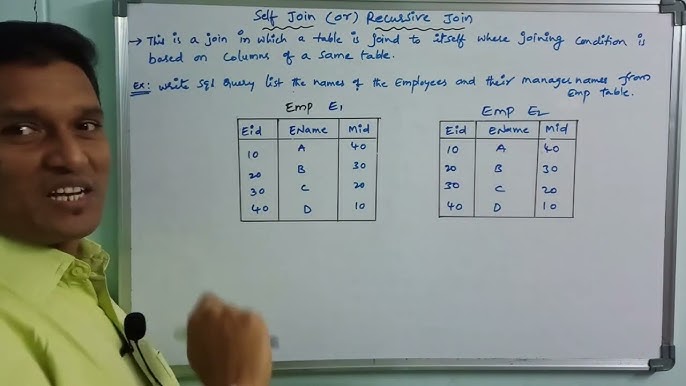 Self Join (or) Recursive Join
→ This is a join in which a table is joind to itself where joining condition is
based on columns of a same table.
Ex: write Sql query list the names of the Employees and their manager names from
Emp table.
Emp E1
Emp E2
Eid EName Mid
10 A 40
20 B 30
30 C 20
40 D 10
Eid EName Mid
10 A 40
20 B 30
30 C 20
40 D 10